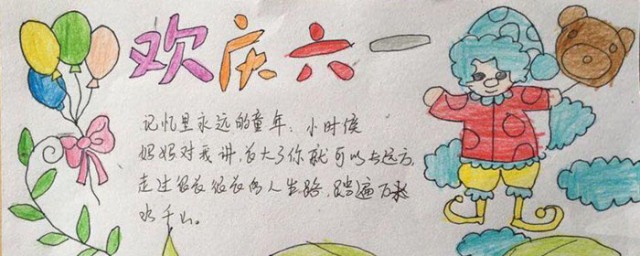 欢庆六一
记忆里永远的童年：小时候
妈妈对我讲，长大了你就可以去远方，
走过很长很长的人生路，踏遍万水
千山。